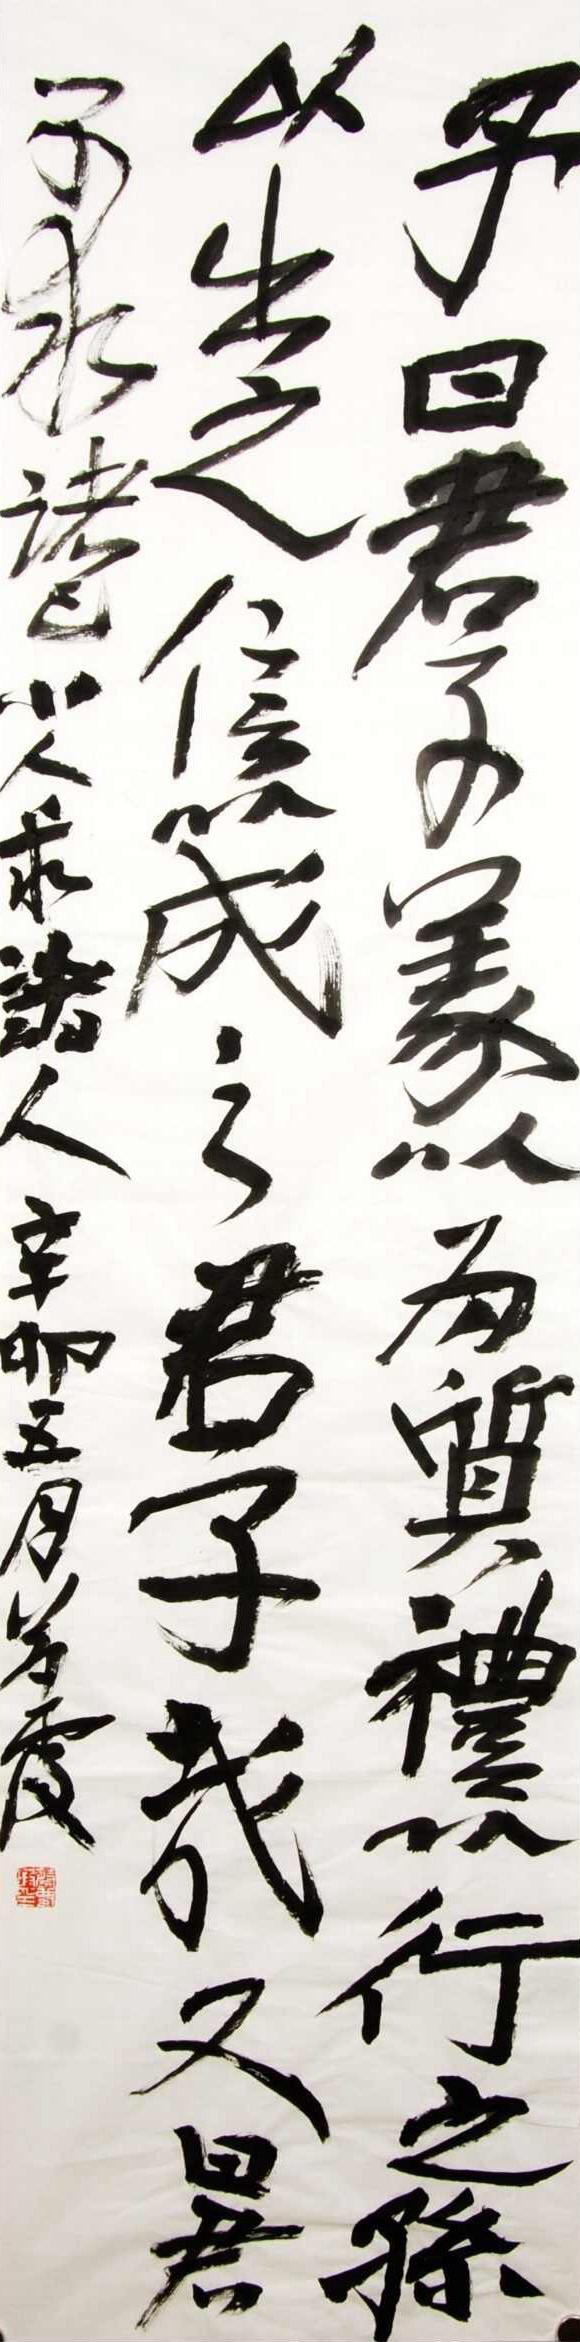 子曰君子義以為質禮以行之孫
以出之信以成之君子哉又曰君
子求諸己小人求諸人辛卯五月